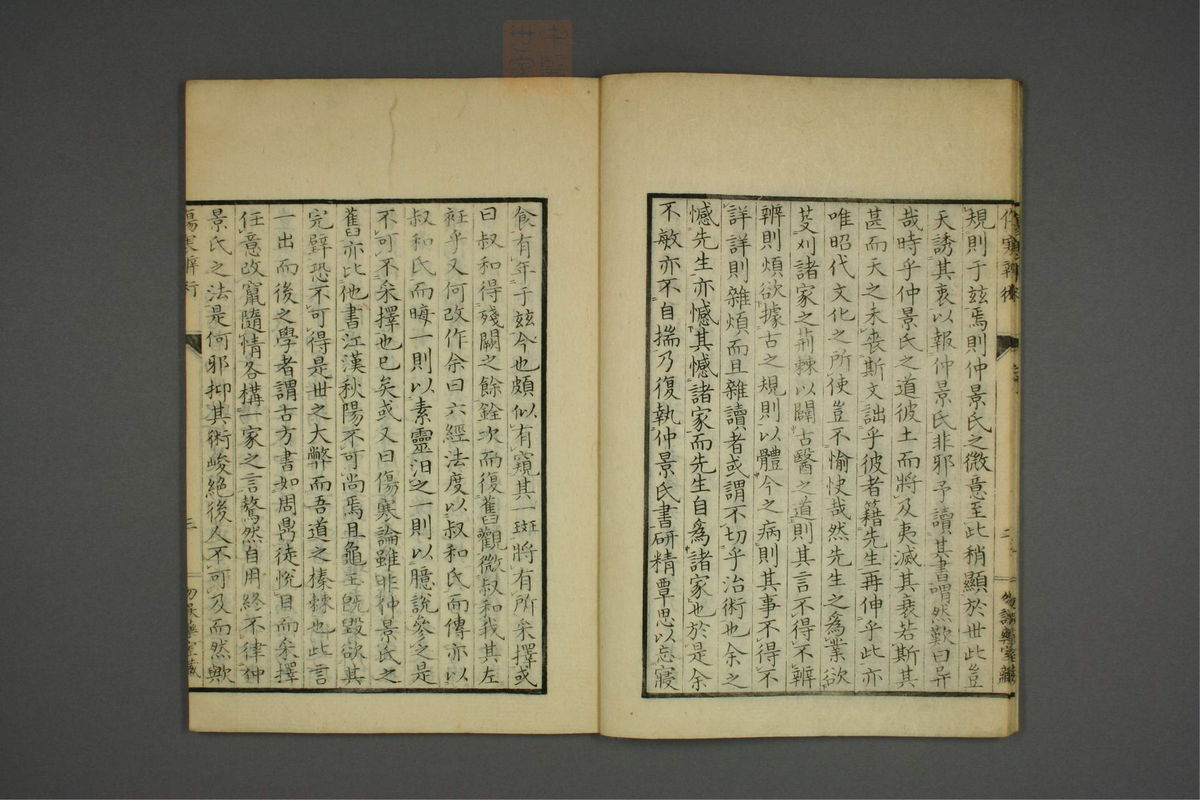 規則于玆焉則仲景氏之微意至此稍顯於世此豈
天誘其衷以報仲景氏非邪予讀其書喟然歎曰异
哉時乎仲景氏之道彼土而將及夷滅其衰若斯其
甚而天之未喪斯文詘乎彼者籍先生再伸乎此亦
唯昭代文化之所使豈不愉快哉然先生之為業欲
芟刈諸家之荊棘以闢古醫之道則其言不得不辨
辨則煩欲據古之規則以體今之病則其事不得不
詳詳則雜煩而且雜讀者或謂不切乎治術也余之
憾先生亦憾其憾諸家而先生自為諸家也於是余
不敏亦不自揣乃復執仲景氏書研精覃思以忘寢
食有年于玆今也頗似有窺其一斑將有所采擇或
曰叔和得殘闕之餘銓次而復舊觀微叔和我其左
衽乎又何改作余曰六經法度以叔和氏而傳亦以
叔和氏而晦一則以素靈汨之一則以臆說參之是
不可不采擇也已矣或又曰傷寒論雖非仲景氏之
舊亦比他書江漢秋陽不可尚焉且龜玉既毀欲其
完璧恐不可得是世之大弊而吾道之榛棘也此言
一出而後之學者謂古方書如周鼎徒悅目而采擇
任意改竄隨情各構一家之言驁然自用終不律仲
景氏之法是何邪抑其術峻絕後人不可及而然歟
三